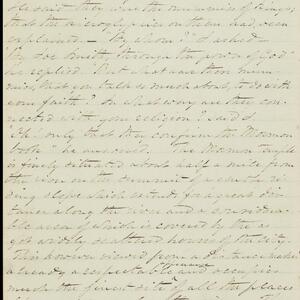 He said they are the mummies of kings,
that the on them had been
explained. — "By whom?" I asked —
"By Joe Smith, through the power of God"
he replied. But what are these mum-
mies, that you talk so much about, to do with
your faith? In what way are they con-
nected with your religion? said I.
"It is only that they confirm the Mormon
" he answered. The Mormon temple
is finely situated about half a mile from
the river on the summit of a
ing slope which extends for a great dis-
tance along the river and a considera-
ble area of which is covered by the
widely scattered houses of the city.
This however viewed from a distance makes
already a respectable and occupies
much the finest site of all the places